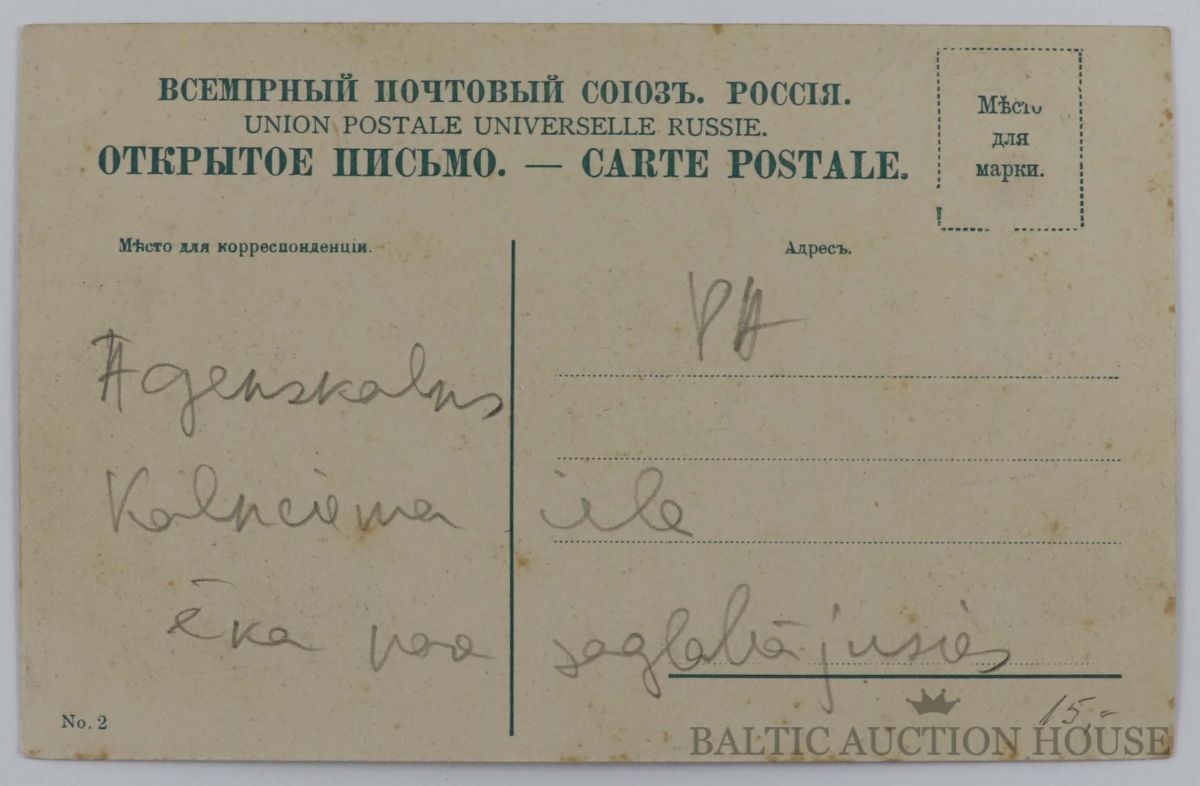 ВСЕМІРНЫЙ ПОЧТОВЫЙ СОЮЗЪ. РОССІЯ.
UNION POSTALE UNIVERSELLE RUSSIE.
ОТКРЫТОЕ ПИСЬМО. — CARTE POSTALE.
Мѣсто
для
марки.
Мѣсто для корреспонденціи.
Адресъ.
PA
Agenskalns
Kalnciema iela
ēka nav saglabājusies
No. 2
15,-
BALTIC AUCTION HOUSE